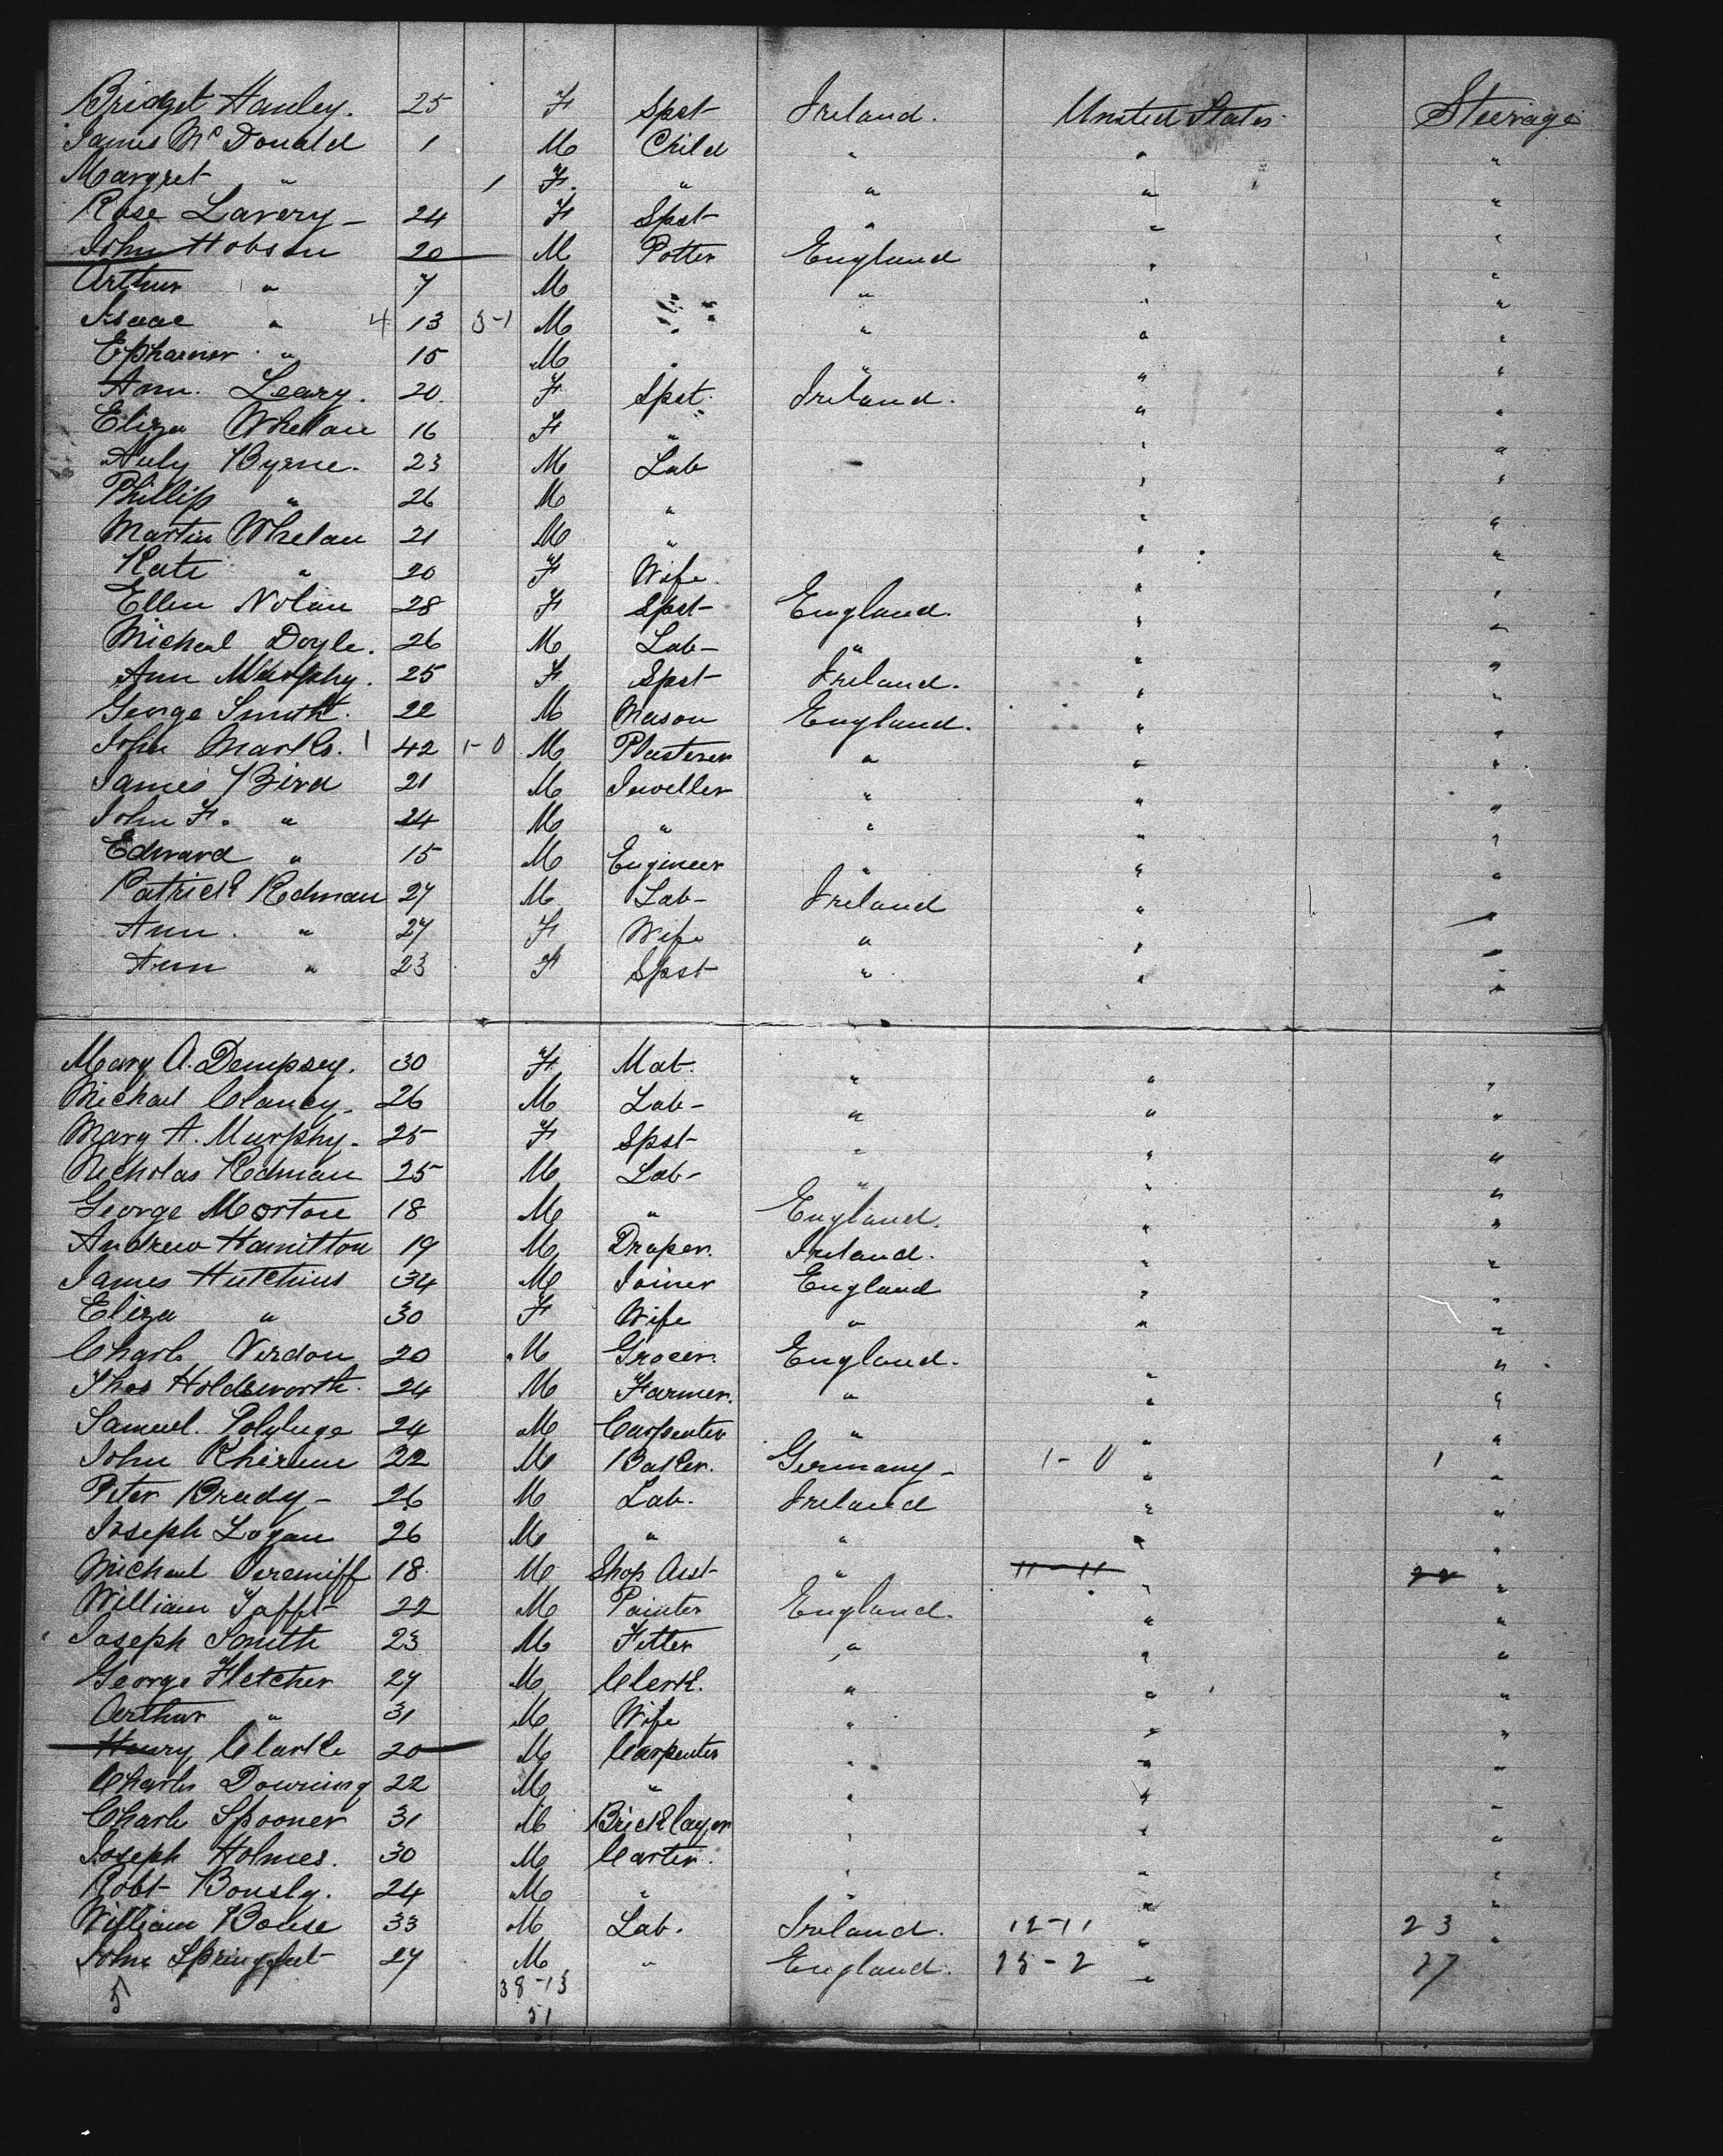 Bridget Hanley. 25 F Spst Ireland. United States Steerage
James McDonald 1 M Child " " "
Margret " 1 F. " " " "
Rose Lavery 24 F Spst " " "
John Hobson 20 M Potter England " "
Arthur " 7 M " " " "
Isaac " 4 13 3-1 M " " " "
" 15 M " " " "
Ann. Leary. 20. F Spst. Ireland. " "
Eliza Whelan 16 F " " "
Byrne. 23 M Lab " "
Phillip " 26 M " " "
Martin Whelan 21 M " " "
Kate " 20 F Wife. " "
Ellen Nolan 28 F Spst England. " "
Micheal Doyle. 26 M Lab " " "
Ann Murphy. 25 F Spst Ireland. " "
George Smith. 22 M Mason England. " "
John Marks. 1 42 1-0 M Plasterer " " "
James Bird 21 M Jeweller " " "
John F. " 24 M " " " "
Edward " 15 M Engineer " " "
Patrick Redman 27 M Lab Ireland " "
Ann. " 27 F Wife " " "
Ann " 23 F Spst " " "
Mary A. Dempsey. 30 F Mat. " " "
Michael Clancy 26 M Lab " " "
Mary A. Murphy 25 F Spst " " "
Nicholas Redman 25 M Lab " " "
George Morton 18 M " England. " "
Andrew Hamilton 19 M Draper. Ireland. " "
James Hutchins 34 M Joiner England " "
Eliza " 30 F Wife " " "
Charls Verdon 20 M Grocer. England. " "
Thos Holdsworth. 24 M Farmer. " " "
Samuel. 24 M Carpenter " " "
John 22 M Baker. Germany 1-0 " 1 "
Peter Brady 26 M Lab. Ireland " "
Joseph Logan 26 M " " " "
Micheal 18. M Shop Asst " 11-11 " 22 "
William Tafft 22 M Painter England. " "
Joseph Smith 23 M Fitter " " "
George Fletcher 27 M Clerk. " " "
Arthur " 31 M Wife " " "
Henry Clarke 20 M Carpenter " " "
Charls Downing 22 M " " " "
Charls Spooner 31 M Bricklayer " " "
Joseph Holmes. 30 M Carter. " " "
Robt 24 M " " " "
William Bouse 33 M Lab. Ireland. 12-11 " 23 "
John 27 M " England. 25-2 " 27
5 38-13
51